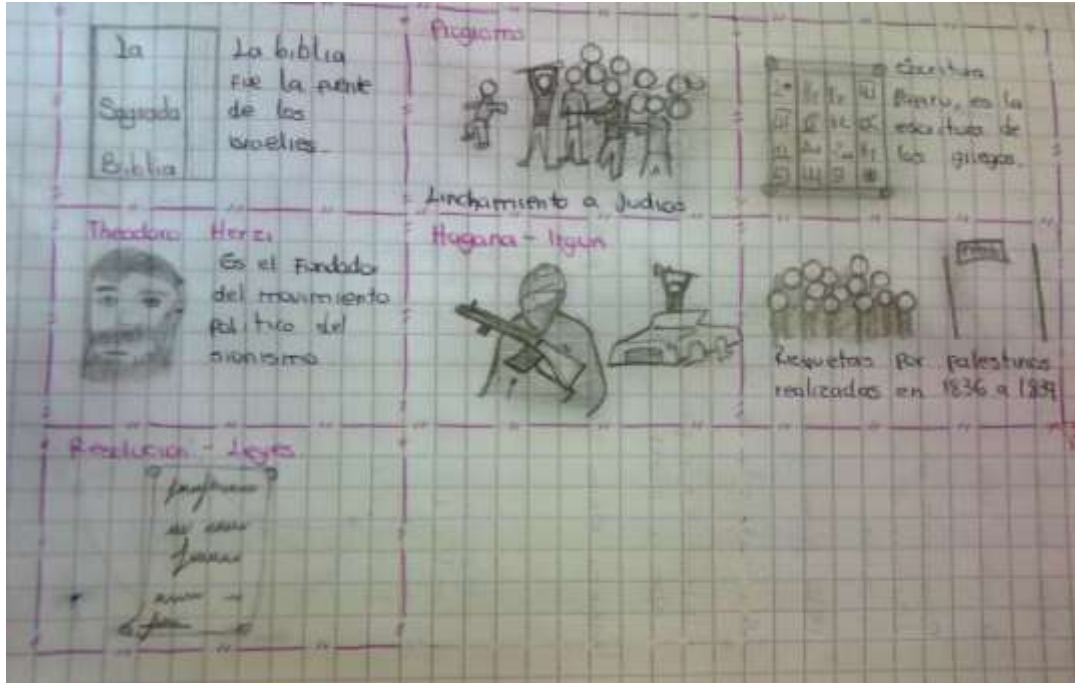 La
Sagrada
Biblia
La biblia
fue la fuente
de los
israelies.
Linchamiento a Judios
escritura
es la
escritura de
los griegos.
Theodoro Herzi
Es el Fundador
del movimiento
Politico del
sionismo
Hagana - Irgun
Por palestinos
realizadas en 1836 a 1839
Resolucion - Leyes